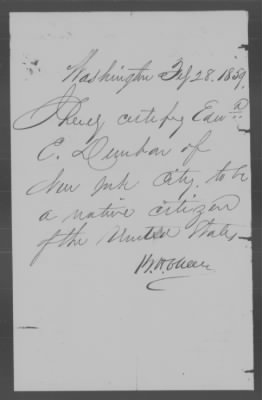 Washington Feby 28. 1859.
I herely certify Edwd.
C. Dunbar of
New York City, to be
a native citizen
of the United States